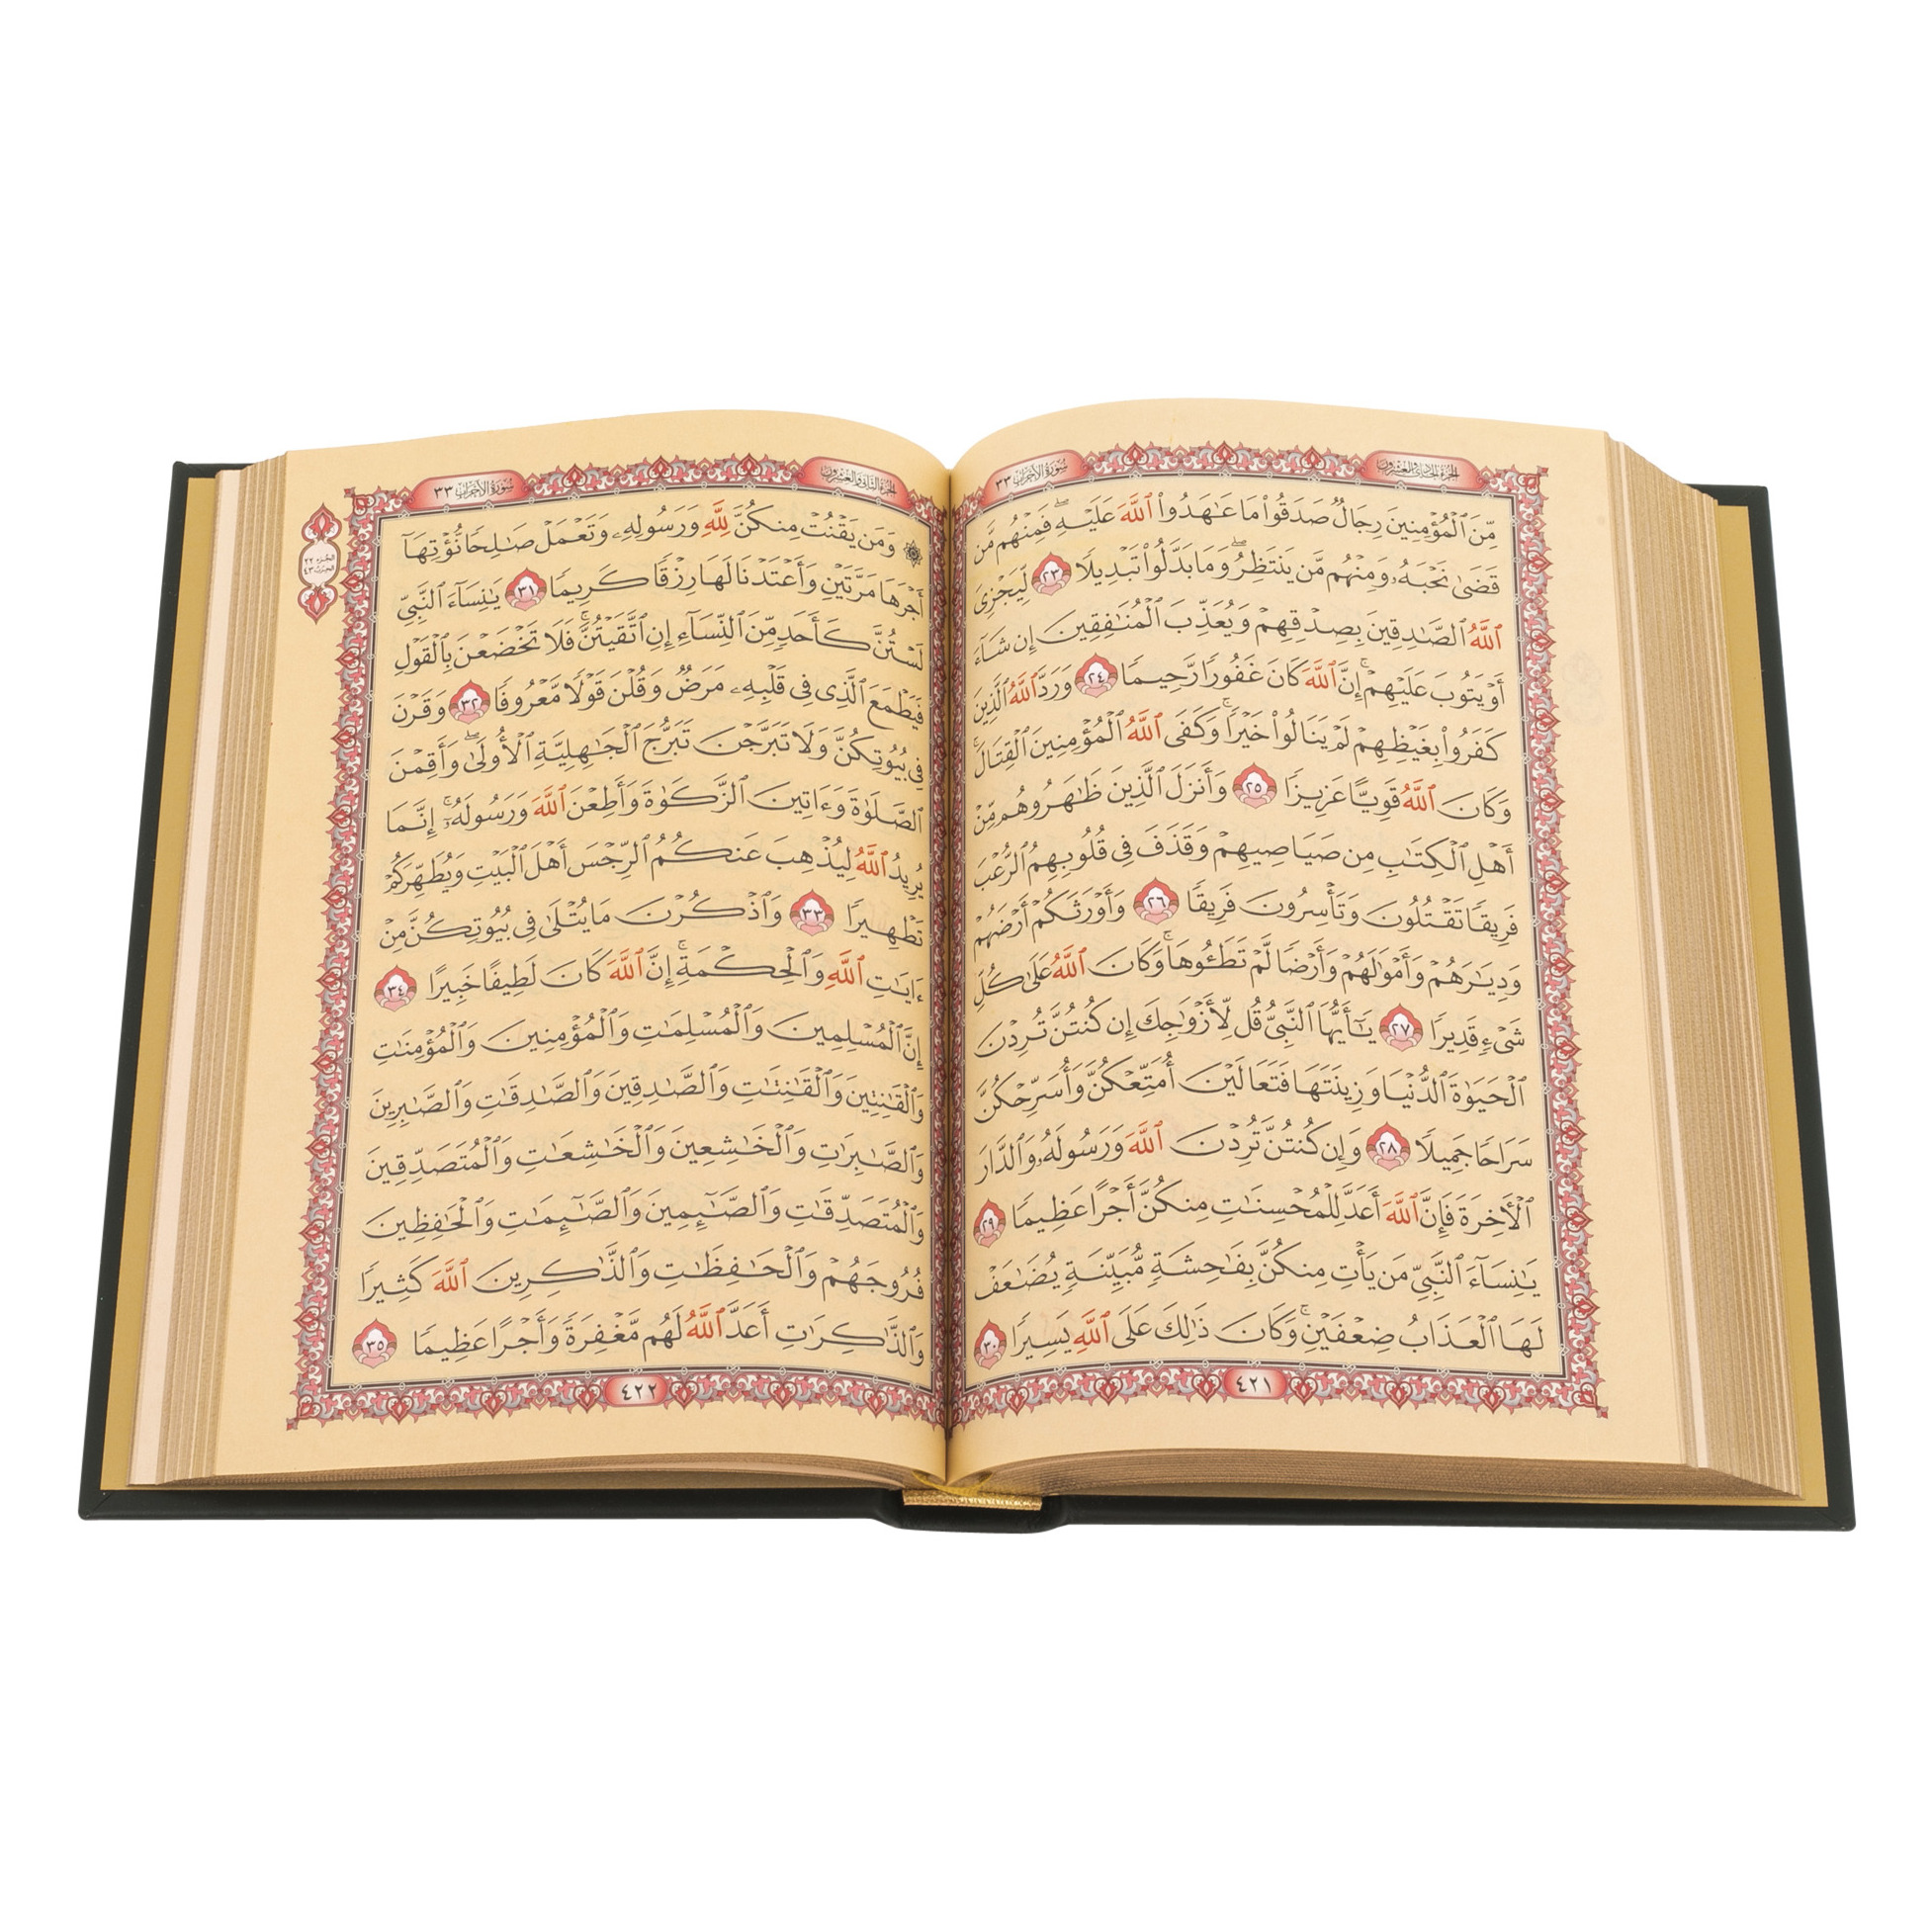 الجزء الحادي والعشرون
سُورَةُ الأَحْزَاب ٣٣
مِّنَ ٱلْمُؤْمِنِينَ رِجَالٌ صَدَقُواْ مَا عَٰهَدُواْ ٱللَّهَ عَلَيْهِۖ فَمِنْهُم مَّن
قَضَىٰ نَحْبَهُۥ وَمِنْهُم مَّن يَنتَظِرُۖ وَمَا بَدَّلُواْ تَبْدِيلًا ٢٣ لِّيَجْزِىَ
ٱللَّهُ ٱلصَّٰدِقِينَ بِصِدْقِهِمْ وَيُعَذِّبَ ٱلْمُنَٰفِقِينَ إِن شَآءَ
أَوْ يَتُوبَ عَلَيْهِمْۚ إِنَّ ٱللَّهَ كَانَ غَفُورًا رَّحِيمًا ٢٤ وَرَدَّ ٱللَّهُ ٱلَّذِينَ
كَفَرُواْ بِغَيْظِهِمْ لَمْ يَنَالُواْ خَيْرًاۚ وَكَفَى ٱللَّهُ ٱلْمُؤْمِنِينَ ٱلْقِتَالَۚ
وَكَانَ ٱللَّهُ قَوِيًّا عَزِيزًا ٢٥ وَأَنزَلَ ٱلَّذِينَ ظَٰهَرُوهُم مِّنْ
أَهْلِ ٱلْكِتَٰبِ مِن صَيَاصِيهِمْ وَقَذَفَ فِى قُلُوبِهِمُ ٱلرُّعْبَ
فَرِيقًا تَقْتُلُونَ وَتَأْسِرُونَ فَرِيقًا ٢٦ وَأَوْرَثَكُمْ أَرْضَهُمْ
وَدِيَٰرَهُمْ وَأَمْوَٰلَهُمْ وَأَرْضًا لَّمْ تَطَـُٔوهَاۚ وَكَانَ ٱللَّهُ عَلَىٰ كُلِّ
شَىْءٍ قَدِيرًا ٢٧ يَٰٓأَيُّهَا ٱلنَّبِىُّ قُل لِّأَزْوَٰجِكَ إِن كُنتُنَّ تُرِدْنَ
ٱلْحَيَوٰةَ ٱلدُّنْيَا وَزِينَتَهَا فَتَعَالَيْنَ أُمَتِّعْكُنَّ وَأُسَرِّحْكُنَّ
سَرَاحًا جَمِيلًا ٢٨ وَإِن كُنتُنَّ تُرِدْنَ ٱللَّهَ وَرَسُولَهُۥ وَٱلدَّارَ
ٱلْأَخِرَةَ فَإِنَّ ٱللَّهَ أَعَدَّ لِلْمُحْسِنَٰتِ مِنكُنَّ أَجْرًا عَظِيمًا ٢٩
يَٰنِسَآءَ ٱلنَّبِىِّ مَن يَأْتِ مِنكُنَّ بِفَٰحِشَةٍ مُّبَيِّنَةٍ يُضَٰعَفْ
لَهَا ٱلْعَذَابُ ضِعْفَيْنِۚ وَكَانَ ذَٰلِكَ عَلَى ٱللَّهِ يَسِيرًا ٣٠
٤٢١
الجزء الثاني والعشرون
سُورَةُ الأَحْزَاب ٣٣
۞ وَمَن يَقْنُتْ مِنكُنَّ لِلَّهِ وَرَسُولِهِۦ وَتَعْمَلْ صَٰلِحًا نُّؤْتِهَآ
أَجْرَهَا مَرَّتَيْنِ وَأَعْتَدْنَا لَهَا رِزْقًا كَرِيمًا ٣١ يَٰنِسَآءَ ٱلنَّبِىِّ
لَسْتُنَّ كَأَحَدٍ مِّنَ ٱلنِّسَآءِ إِنِ ٱتَّقَيْتُنَّۚ فَلَا تَخْضَعْنَ بِٱلْقَوْلِ
فَيَطْمَعَ ٱلَّذِى فِى قَلْبِهِۦ مَرَضٌ وَقُلْنَ قَوْلًا مَّعْرُوفًا ٣٢ وَقَرْنَ
فِى بُيُوتِكُنَّ وَلَا تَبَرَّجْنَ تَبَرُّجَ ٱلْجَٰهِلِيَّةِ ٱلْأُولَىٰۖ وَأَقِمْنَ
ٱلصَّلَوٰةَ وَءَاتِينَ ٱلزَّكَوٰةَ وَأَطِعْنَ ٱللَّهَ وَرَسُولَهُۥٓۚ إِنَّمَا
يُرِيدُ ٱللَّهُ لِيُذْهِبَ عَنكُمُ ٱلرِّجْسَ أَهْلَ ٱلْبَيْتِ وَيُطَهِّرَكُمْ
تَطْهِيرًا ٣٣ وَٱذْكُرْنَ مَا يُتْلَىٰ فِى بُيُوتِكُنَّ مِنْ
ءَايَٰتِ ٱللَّهِ وَٱلْحِكْمَةِۚ إِنَّ ٱللَّهَ كَانَ لَطِيفًا خَبِيرًا ٣٤
إِنَّ ٱلْمُسْلِمِينَ وَٱلْمُسْلِمَٰتِ وَٱلْمُؤْمِنِينَ وَٱلْمُؤْمِنَٰتِ
وَٱلْقَٰنِتِينَ وَٱلْقَٰنِتَٰتِ وَٱلصَّٰدِقِينَ وَٱلصَّٰدِقَٰتِ وَٱلصَّٰبِرِينَ
وَٱلصَّٰبِرَٰتِ وَٱلْخَٰشِعِينَ وَٱلْخَٰشِعَٰتِ وَٱلْمُتَصَدِّقِينَ
وَٱلْمُتَصَدِّقَٰتِ وَٱلصَّٰٓئِمِينَ وَٱلصَّٰٓئِمَٰتِ وَٱلْحَٰفِظِينَ
فُرُوجَهُمْ وَٱلْحَٰفِظَٰتِ وَٱلذَّٰكِرِينَ ٱللَّهَ كَثِيرًا
وَٱلذَّٰكِرَٰتِ أَعَدَّ ٱللَّهُ لَهُم مَّغْفِرَةً وَأَجْرًا عَظِيمًا ٣٥
الجزء ٢٢
الحزب ٤٣
٤٢٢